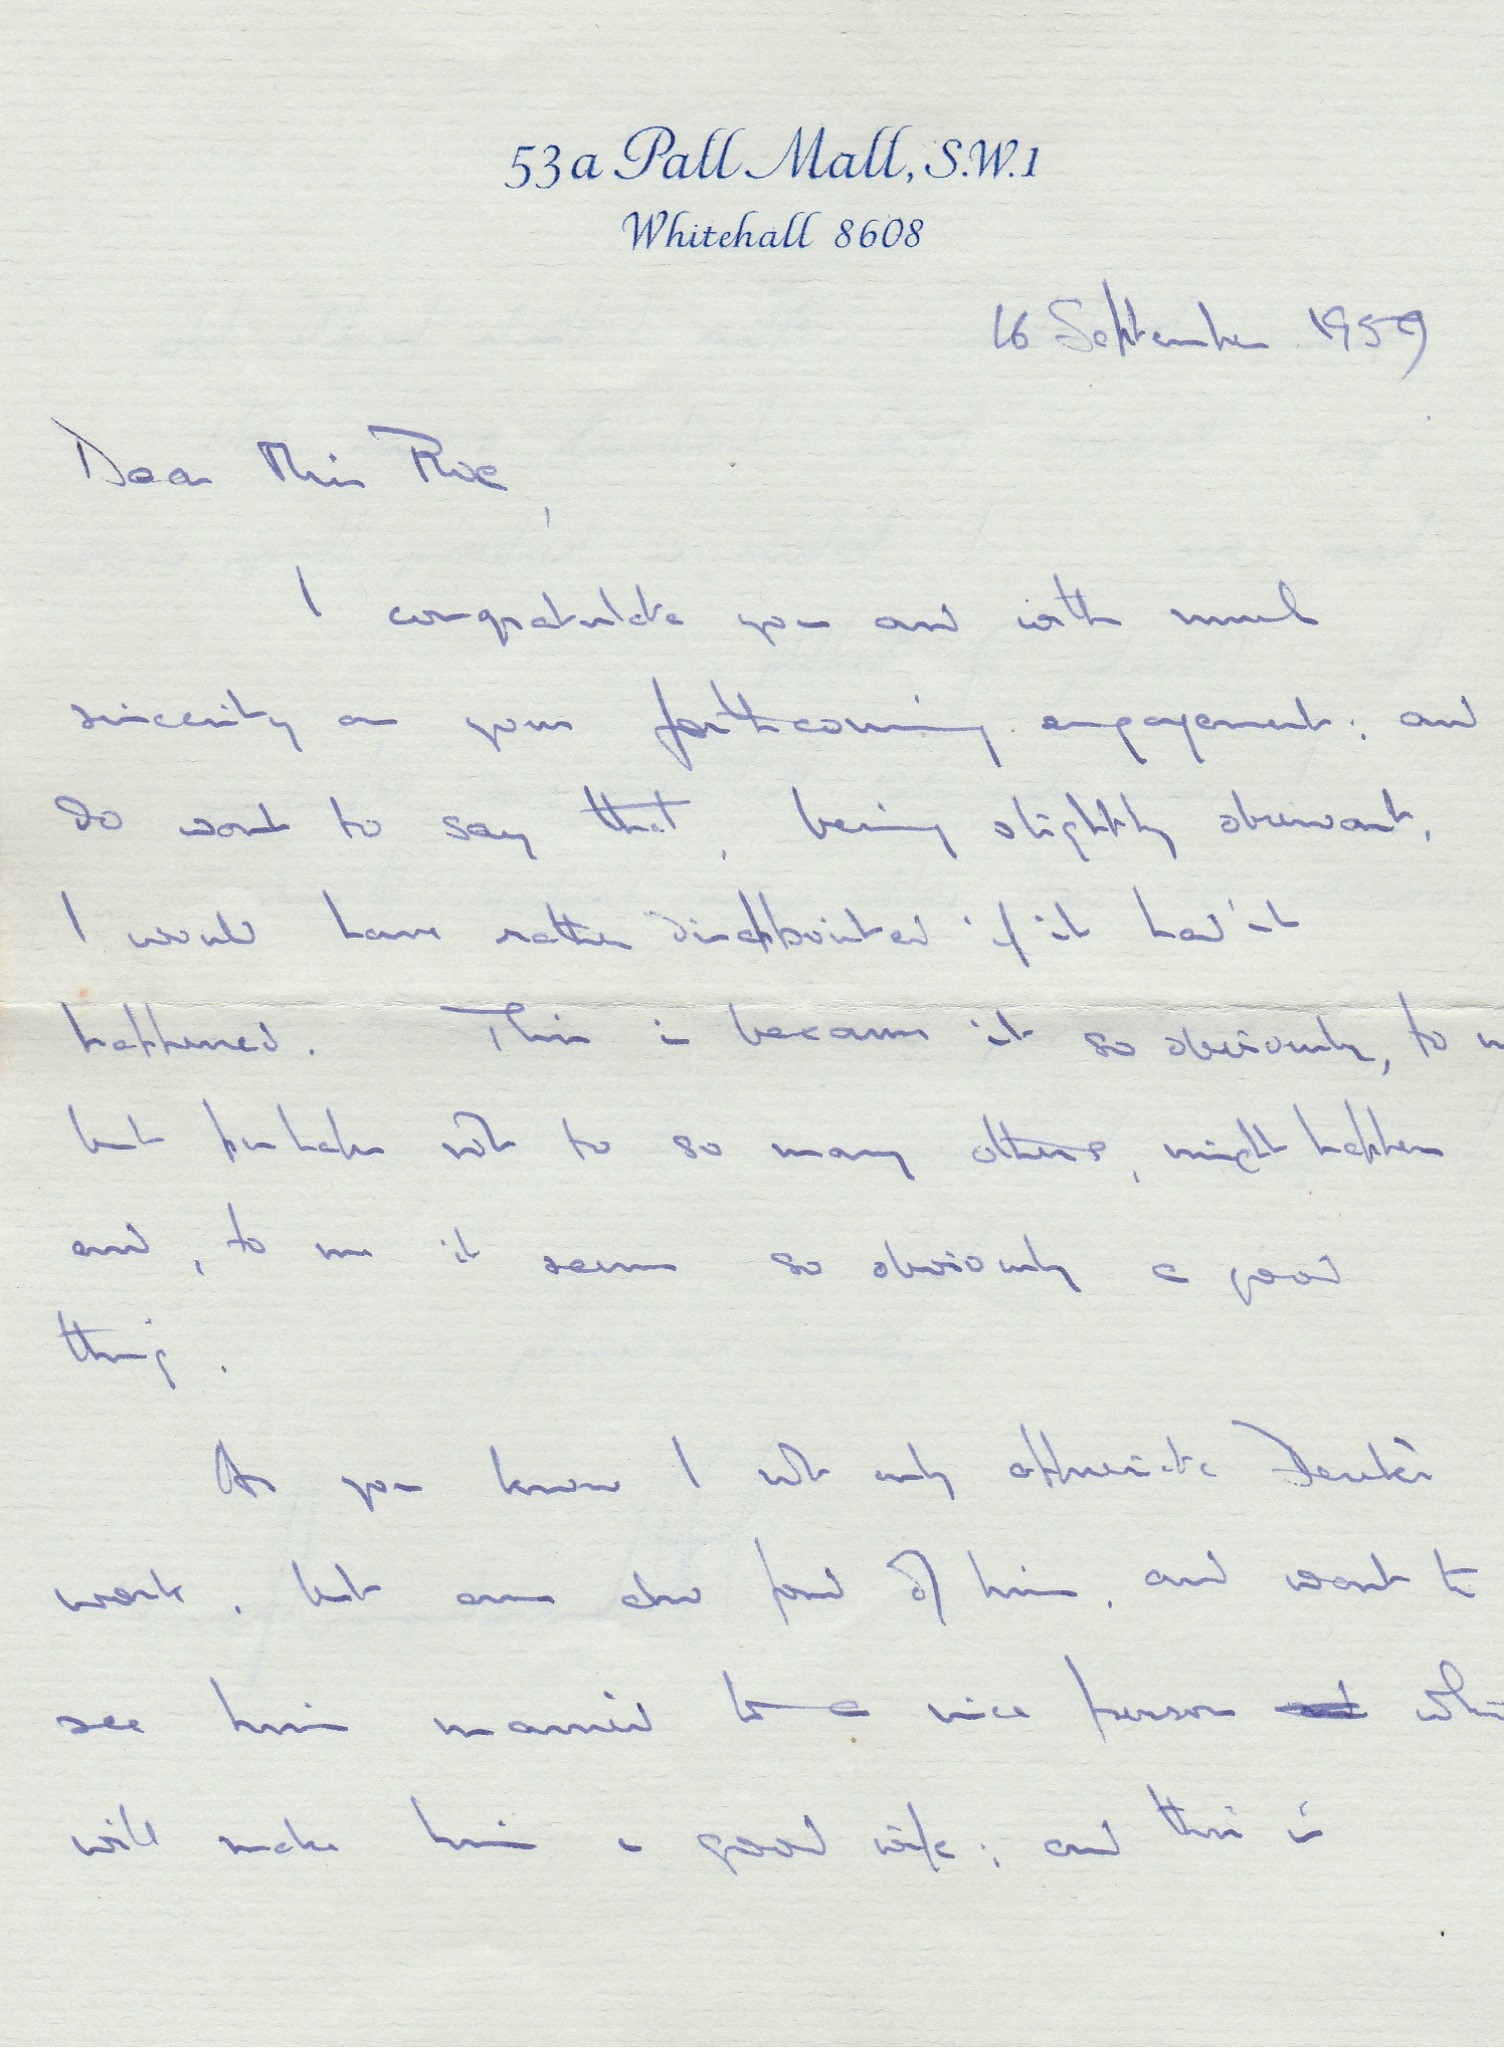 53a Pall Mall, S.W.1
Whitehall 8608
16 September 1959
Dear Miss
I congratulate you and with much
sincerity on your forthcoming engagement; and
do want to say that, being slightly observant,
I would have rather disappointed if it had'nt
happened. This is because it so obviously, to
but perhaps not to so many others, might happen
and, to me it seems so obviously a good
thing.
As you know I not only appreciate Derek's
work, but am also fond of him, and want to
see him married to a nice person
will make him a good wife; and this is